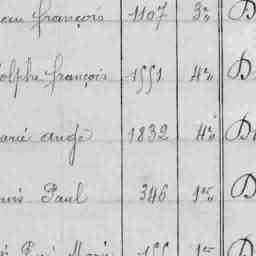 françois 1107 3e D
olphe françois 1551 4e D
arie ange 1832 4e D
ouis Paul 346 1er D
Marie 1er D